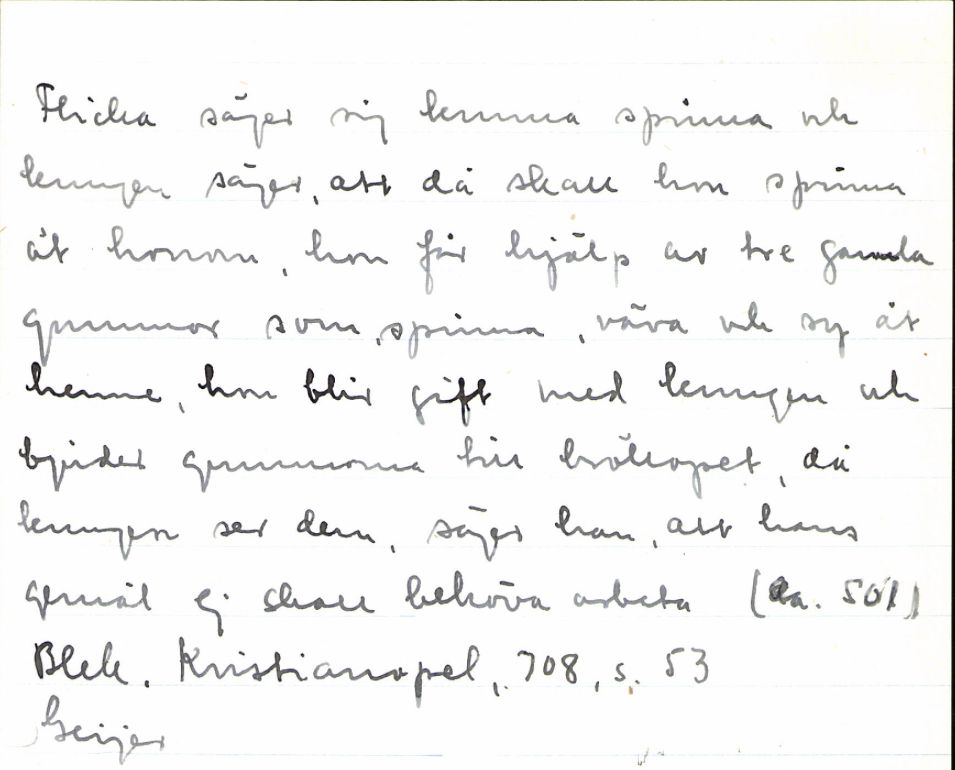 Flicka säger sig kunna spinna och
kungen säger, att då skall hon spinna
åt honom, hon får hjälp av tre gamla
gummor som, spinna, väva och sy åt
henne, hon blir gift med kungen och
bjuder gummorna till bröllopet, då
kungen ser dem, säger han, att hans
gemål ej skall behöva arbeta (Aa. 501)
Blek. Kristianopel, 708, s. 53
Geijer